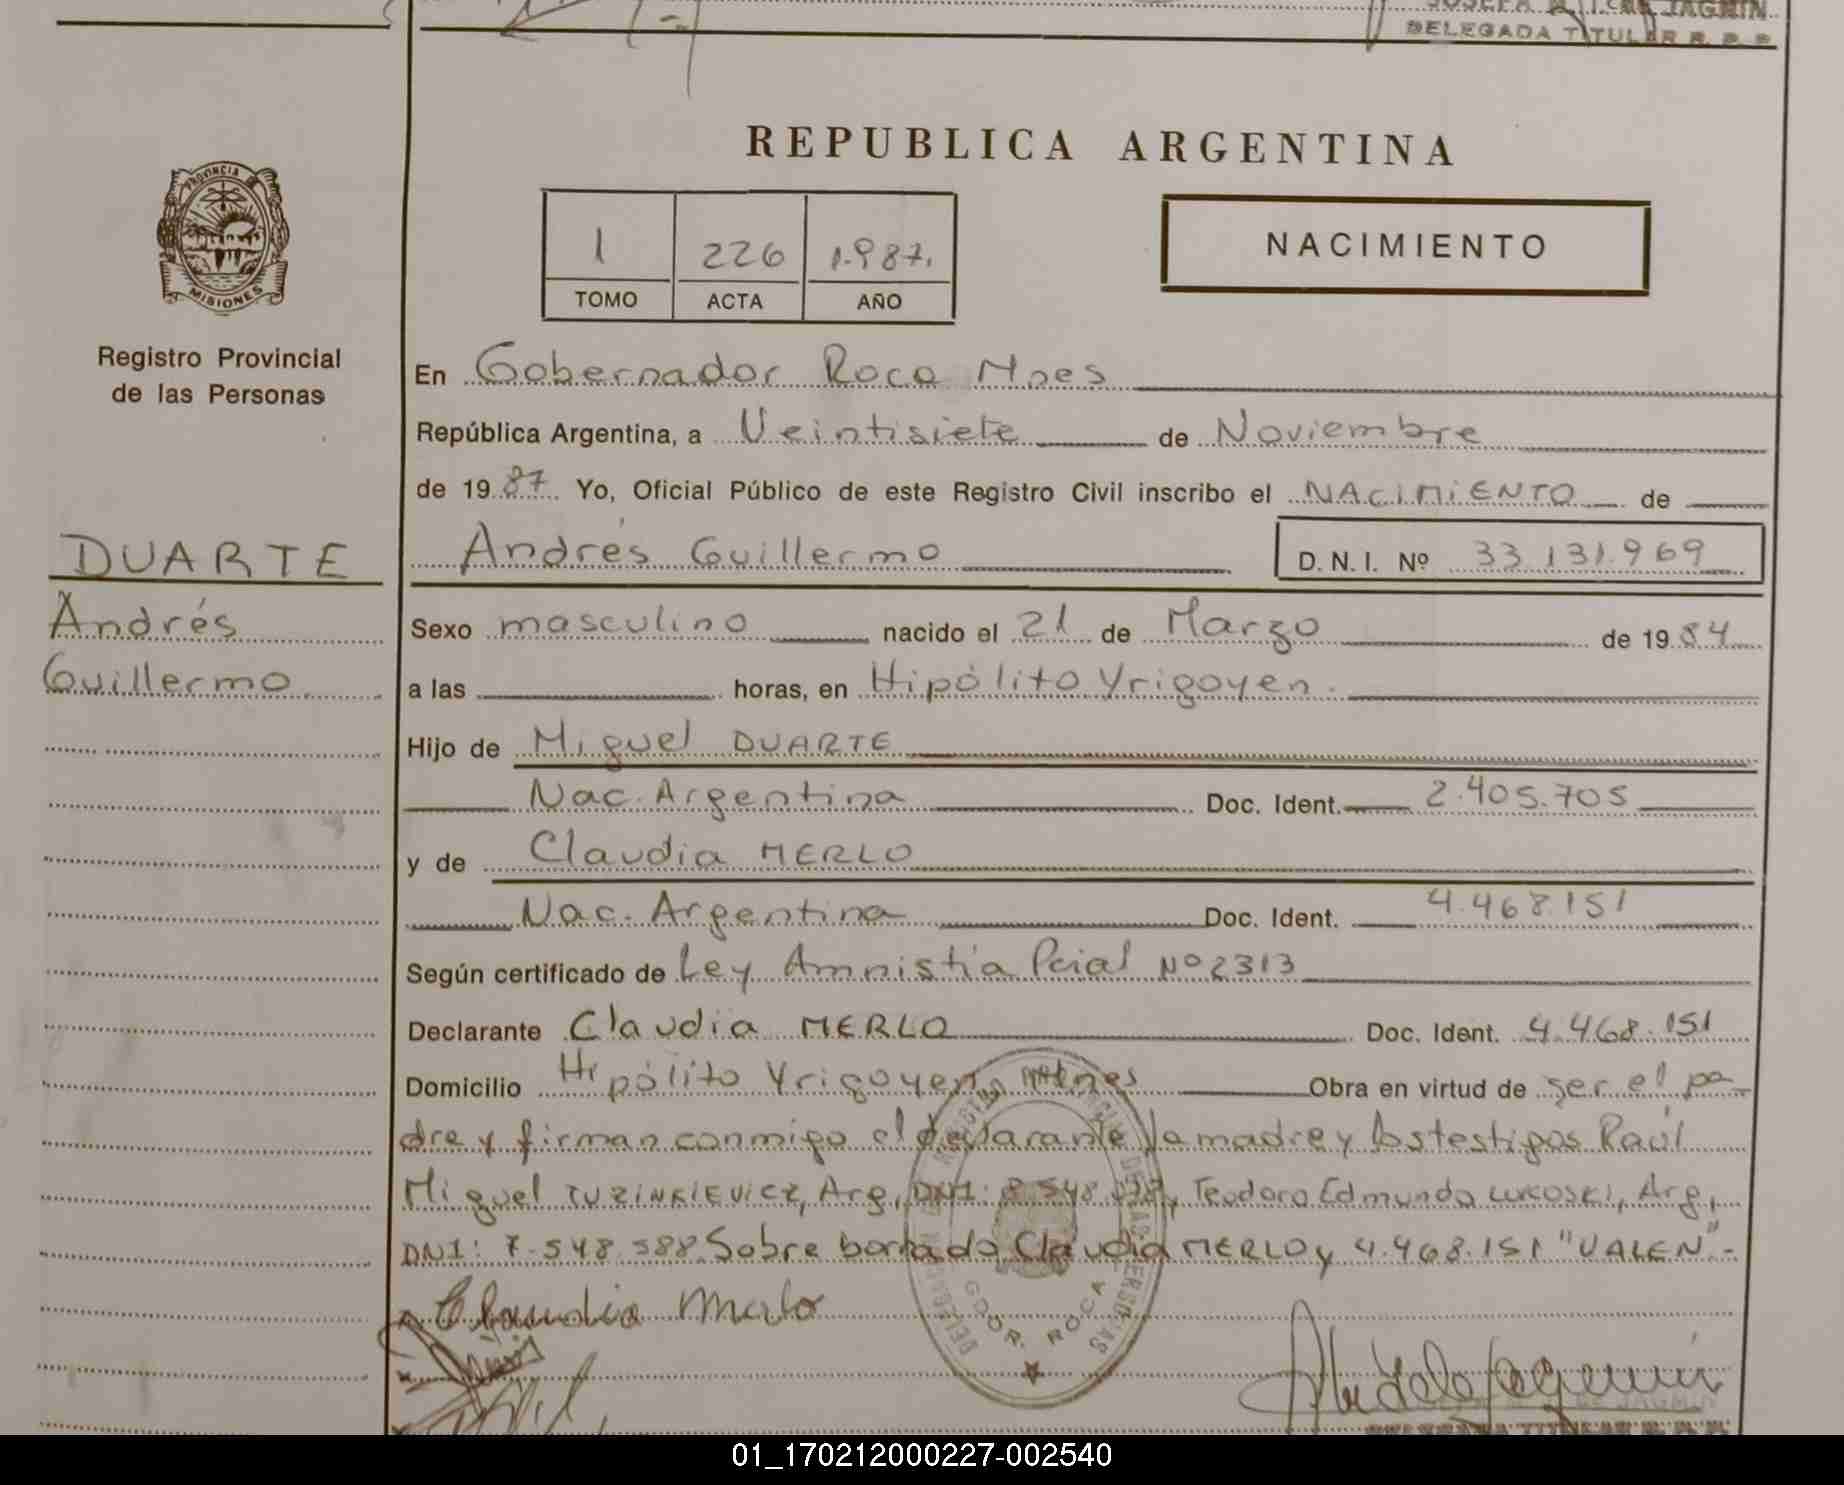 DELEGADA TITULAR R. P. P.
REPUBLICA ARGENTINA
PROVINCIA DE
MISIONES
Registro Provincial
de las Personas
1 226 1.987.
TOMO ACTA AÑO
NACIMIENTO
En Gobernador Roca Mnes
República Argentina, a Veintisiete de Noviembre
de 1987 Yo, Oficial Público de este Registro Civil inscribo el NACIMIENTO de
DUARTE
Andrés Guillermo D. N. I. Nº 33.131.969
Andrés
Guillermo
Sexo masculino nacido el 21 de Marzo de 1984
a las horas, en Hipólito Yrigoyen.
Hijo de Miguel DUARTE
Nac. Argentina Doc. Ident. 2.405.705
y de Claudia MERLO
Nac. Argentina Doc. Ident. 4.468.151
Según certificado de Ley Amnistía Pcial Nº 2313
Declarante Claudia MERLO Doc. Ident. 4.468.151
Domicilio Hipólito Yrigoyen, Mnes Obra en virtud de ser el pa-
dre y firman conmigo el declarante la madre y los testigos Raúl
Miguel TUZINKIEVICZ, Arg, DNI: Teodoro Edmundo LUKOSKI, Arg,
DNI: 7.548.588. Sobre borrado Claudia MERLO y 4.468.151 "VALEN".-
Claudia Merlo
GDOR. ROCA
01_170212000227-002540